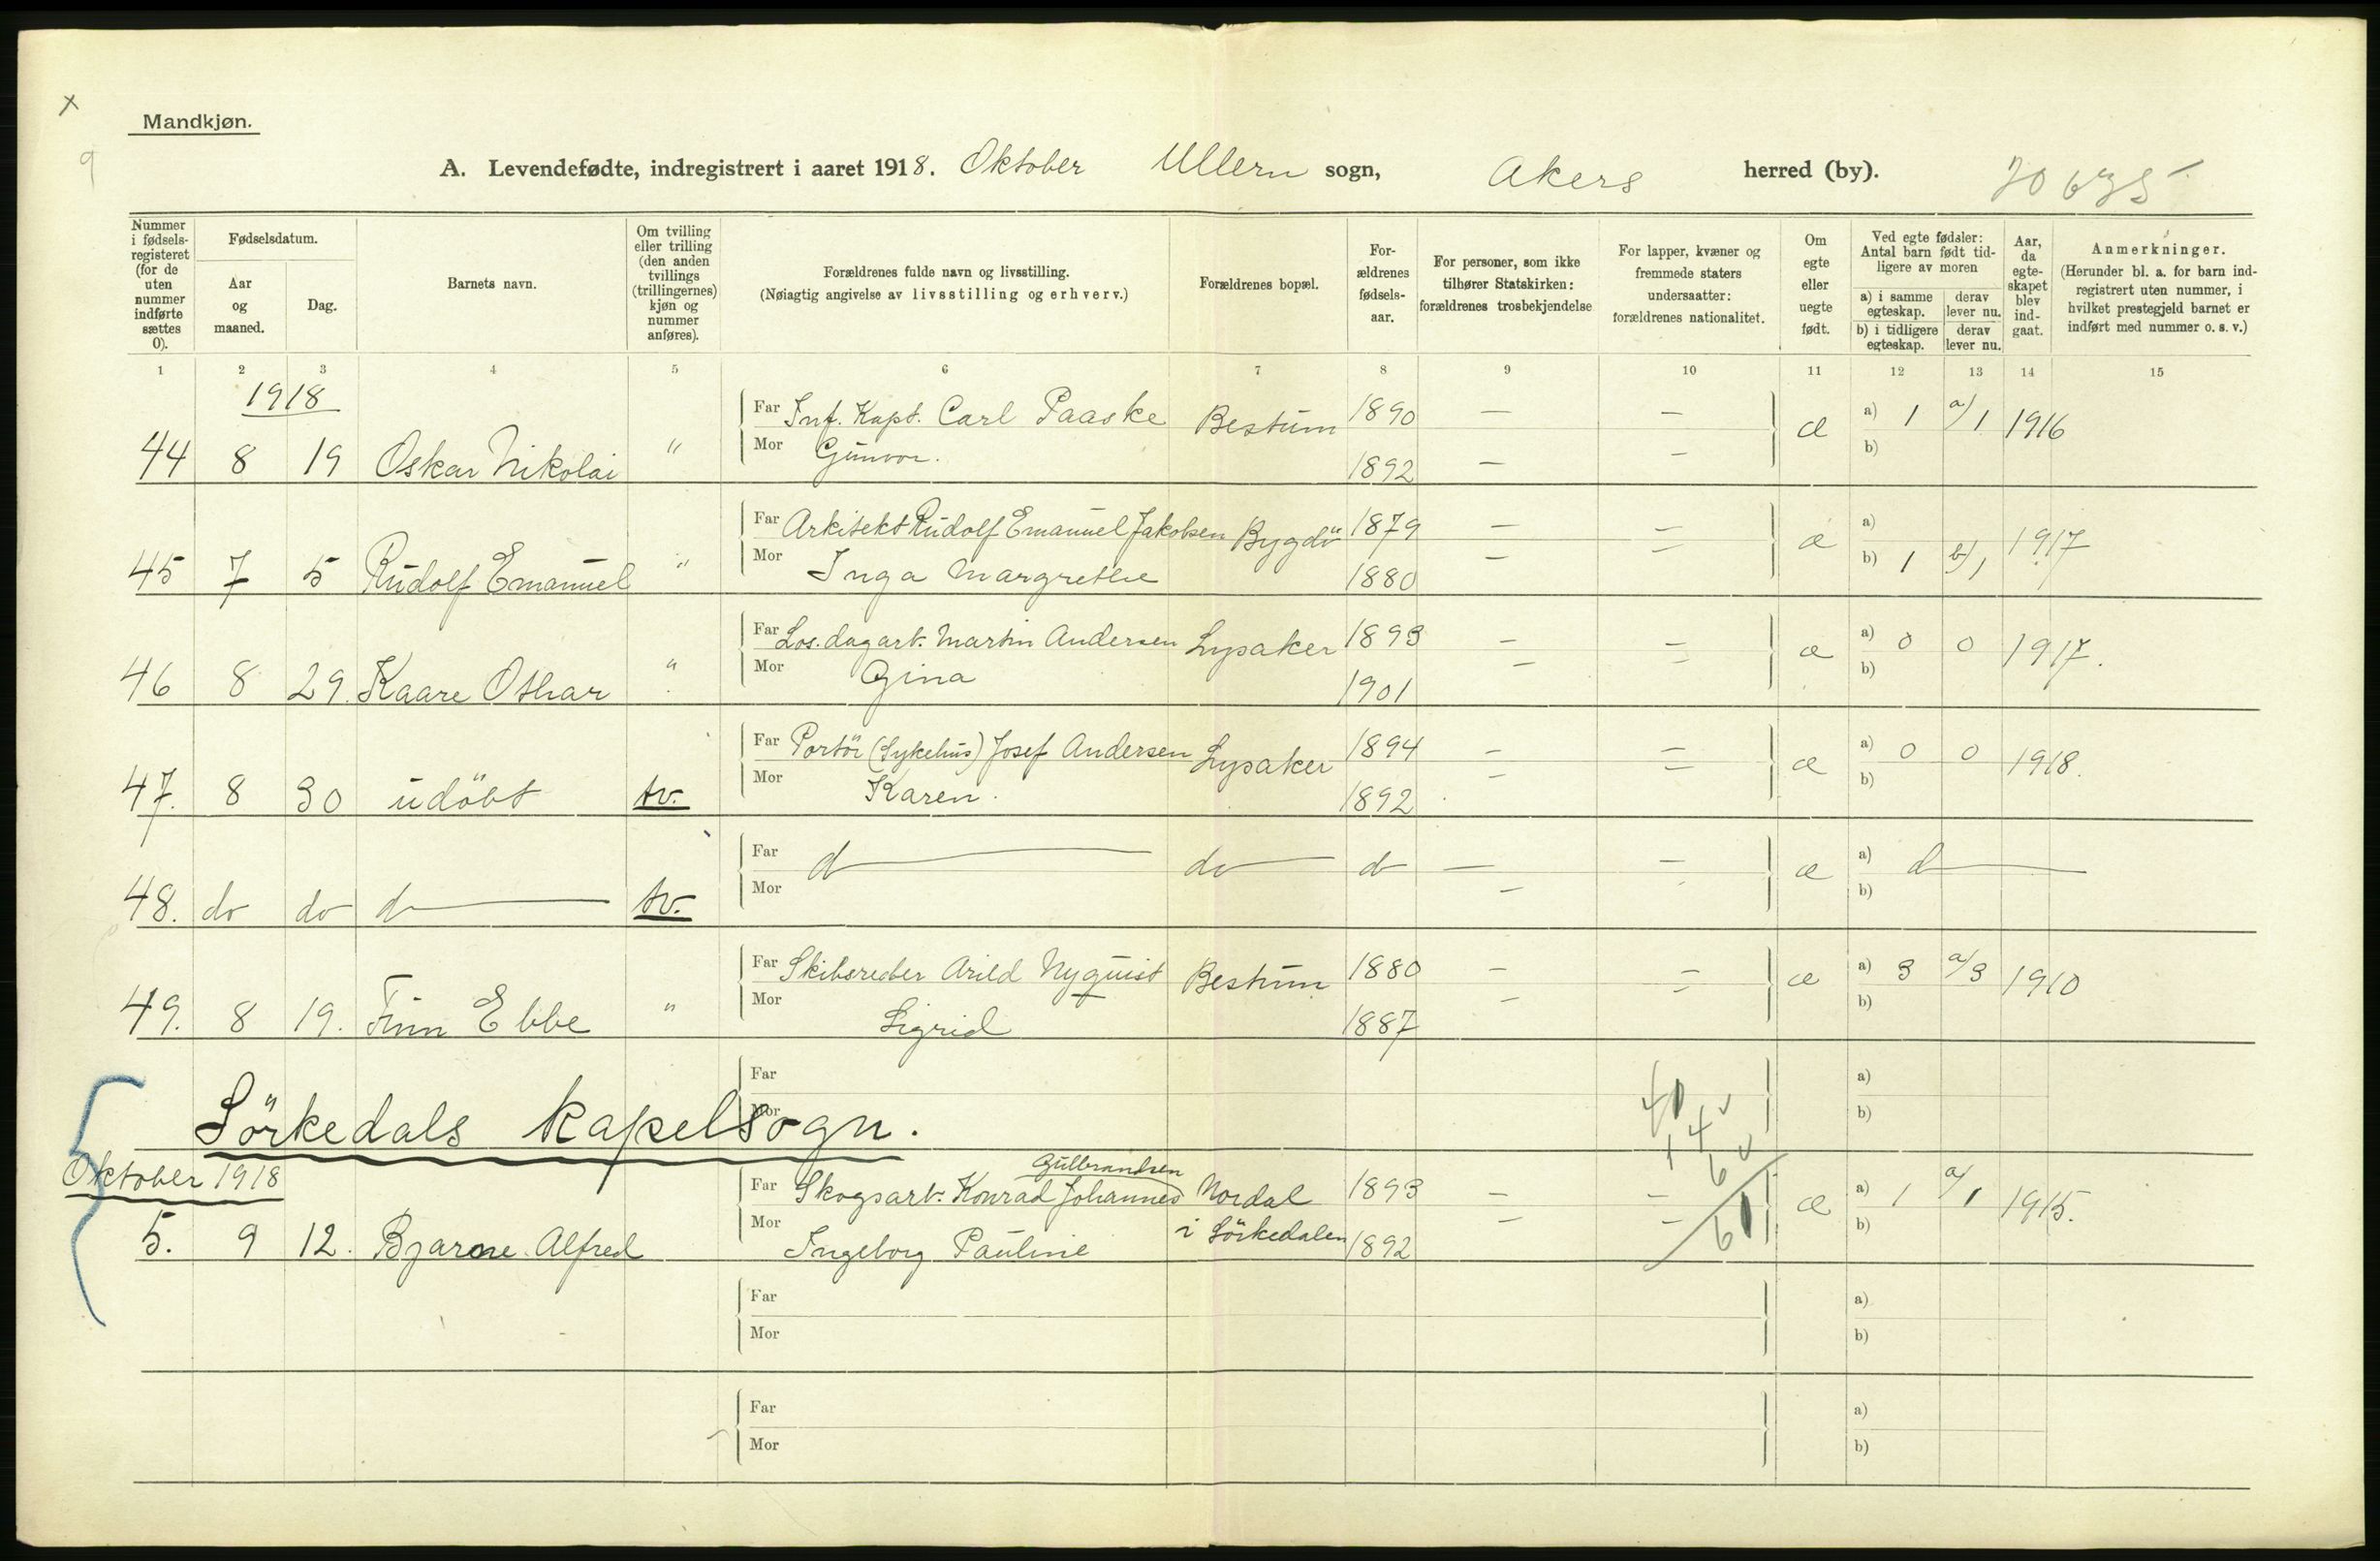 Mandkjøn.
A. Levendefødte, indregistrert i aaret 1918. Oktober Ullern sogn, Akers herred (by).
Nummer i fødselsregisteret (for de uten nummer indførte sættes 0).
Fødselsdatum.
Aar og maaned.
Dag.
Barnets navn.
Om tvilling eller trilling (den anden tvillings (trillingernes) kjøn og nummer anføres).
Forældrenes fulde navn og livsstilling.
(Nøiagtig angivelse av livsstilling og erhverv.)
Forældrenes bopæl.
Forældrenes fødselsaar.
For personer, som ikke tilhører Statskirken: forældrenes trosbekjendelse
For lapper, kvæner og fremmede staters undersaatter: forældrenes nationalitet.
Om egte eller uegte født.
Ved egte fødsler: Antal barn født tidligere av moren
a) i samme egteskap. derav lever nu.
b) i tidligere egteskap. derav lever nu.
Aar, da egteskapet blev indgaat.
Anmerkninger.
(Herunder bl. a. for barn indregistrert uten nummer, i hvilket prestegjeld barnet er indført med nummer o. s. v.)
1 2 3 4 5 6 7 8 9 10 11 12 13 14 15
1918
Far Inf. Kapt. Carl Paaske Bestum 1890 — — æ a) 1 a/1 1916
44 8 19 Oskar Nikolai " Mor Gunvor. 1892 — — b)
Far Arkitekt Rudolf Emanuel Jakobsen Bygdö 1879 — — æ a) 1917
45 7 5 Rudolf Emanuel " Mor Inga Margrethe 1880 — — b) 1 b/1
Far Los. dagarb. Martin Andersen Lysaker 1893 — — æ a) 0 0 1917.
46 8 29. Kaare Othar " Mor Gina 1901 — — b)
Far Portör (Sykehus) Josef Andersen Lysaker 1894 — — æ a) 0 0 1918.
47. 8 30 udöbt tv. Mor Karen. 1892 — — b)
Far d— do d — — æ a) d—
48. do do d— tv. Mor — — b)
Far Skibsreder Arild Nyquist Bestum 1880 — — æ a) 3 a/3 1910
49. 8 19. Finn Ebbe " Mor Sigrid 1887 — — b)
Far a)
Sörkedals kapelsogn. Mor b)
Oktober 1918
Gulbrandsen
Far Skogsarb. Konrad Johannes Nordal 1893 — — æ a) 1 a/1 1915.
5. 9 12. Bjarne Alfred Mor Ingeborg Pauline i Sörkedalen 1892 — — b)
Far a)
Mor b)
Far a)
Mor b)